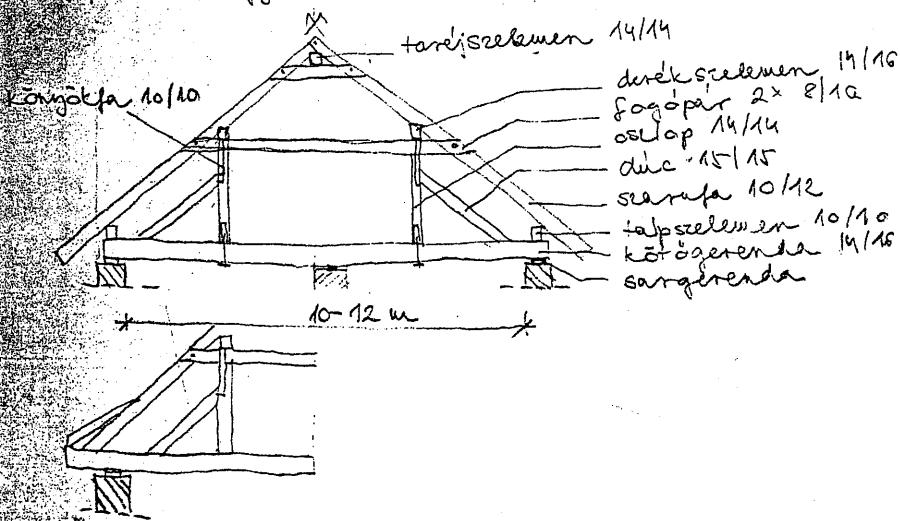 taréjszelemen 14/14
könyökfa 10/10
derékszelemen 14/16
fogópár 2x 8/10
oszlop 14/14
dúc 15/15
szarufa 10/12
talpszelemen 10/10
kötőgerenda 14/16
sárgerenda
10-12 m